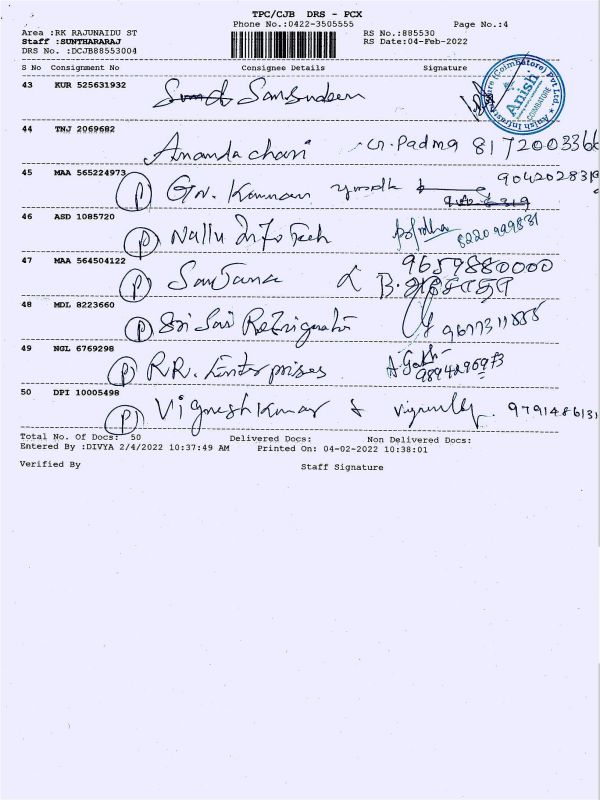 TPC/CJB DRS - PCX
Phone No.:0422-3505555 Page No.:4
Area :RK RAJUNAIDU ST RS No.:885530
Staff :SUNTHARARAJ RS Date:04-Feb-2022
DRS No. :DCJB88553004
S No Consignment No Consignee Details Signature
43 KUR 525631932
44 TNJ 2069682
Anandachari G. Padma 8172003366
45 MAA 565224973
P GN. Kannan 9042028319
46 ASD 1085720
P Nallu Info Tech 8220929831
47 MAA 564504122
P Sanjana 9659880000
48 MDL 8223660
P Sri Sai Refrigeration
49 NGL 6769298
P RR. Enterprises 9894296973
50 DPI 10005498
P Vignesh Kumar 9791486131
Total No. Of Docs: 50 Delivered Docs: Non Delivered Docs:
Entered By :DIVYA 2/4/2022 10:37:49 AM Printed On: 04-02-2022 10:38:01
Verified By Staff Signature